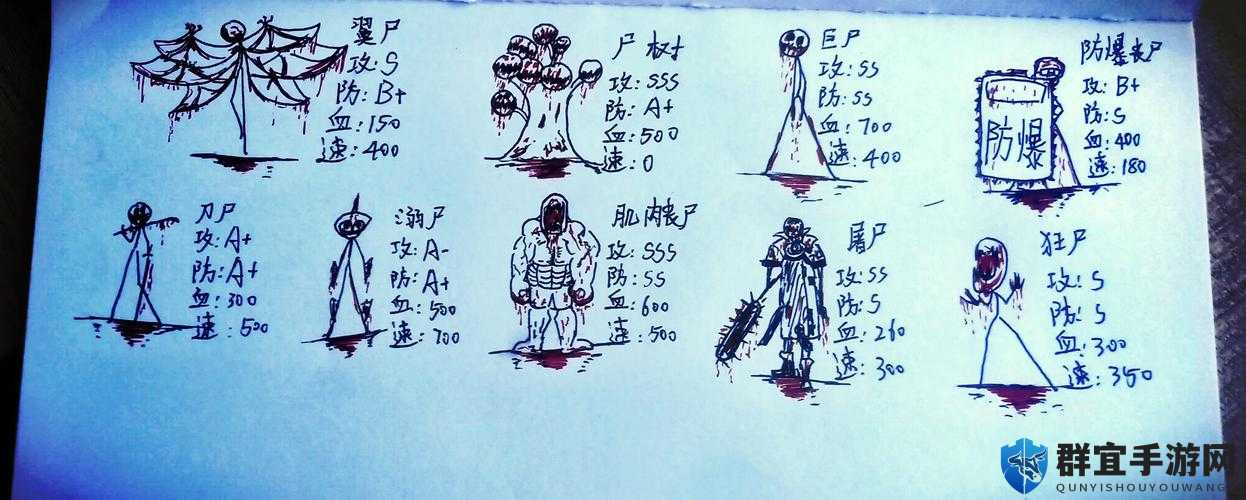 翼尸
攻:S
防:B+
血:150
速:400
尸树
攻:SSS
防:A+
血:500
速:0
巨尸
攻:SS
防:SS
血:700
速:400
防爆丧尸
攻:B+
防:S
血:400
速:180
防爆
刀尸
攻:A+
防:A+
血:300
速:500
溺尸
攻:A-
防:A+
血:500
速:700
肌肉丧尸
攻:SSS
防:SS
血:600
速:500
屠尸
攻:SS
防:S
血:260
速:300
狂尸
攻:S
防:S
血:300
速:350
群宜手游网
QUNYISHOUYOUWANG